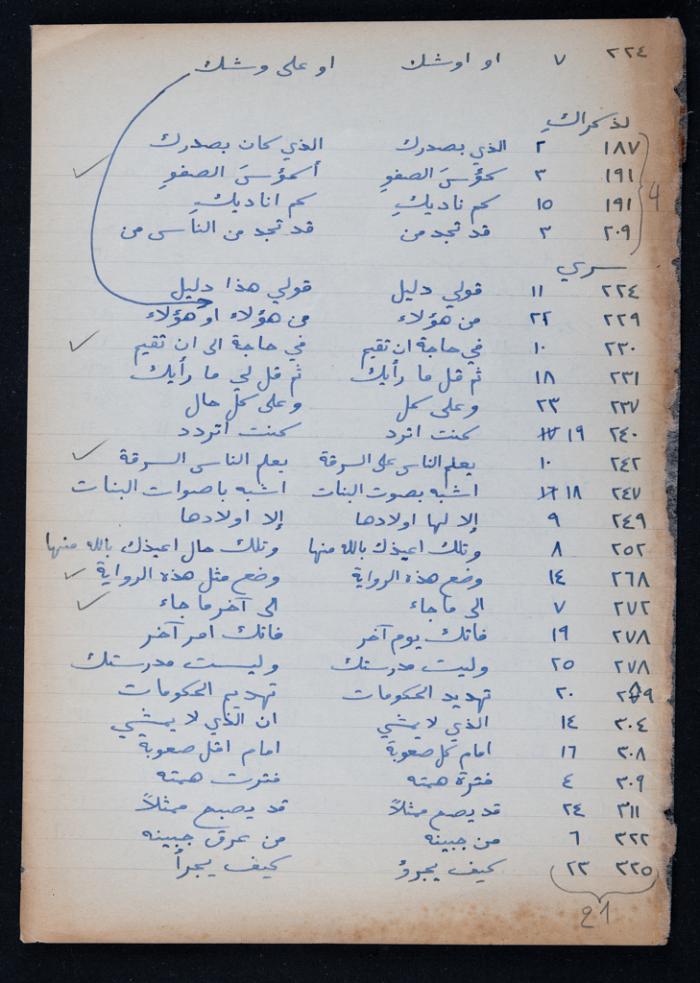 ٢٢٤ ٧ او اوشك او على وشك
لذكراكِ
١٨٧ ٢ الذي بصدرك الذي كان بصدرك
١٩١ ٣ كؤسَ الصفوِ أكؤسَ الصفوِ
١٩١ ١٥ كم ناديكِ كم اناديكِ
٢٠٩ ٣ قد تجد من قد تجد من الناس من
4
سري
٢٢٤ ١١ قولي دليل قولي هذا دليل
٢٢٩ ٢٢ من هؤلاء من هؤلاء او هؤلاء
٢٣٠ ١٠ في حاجة ان تقيم في حاجة الى ان تقيم
٢٣١ ١٨ ثم قل ما رأيك ثم قل لي ما رأيك
٢٣٧ ٢٣ وعلى كل وعلى كل حال
٢٤٠ ١٩ كنت اترد كنت اتردد
٢٤٢ ١٠ يعلم الناس على السرقة يعلم الناس السرقة
٢٤٧ ١٨ اشبه بصوت البنات اشبه باصوات البنات
٢٤٩ ٩ إلا لها اولادها إلا اولادها
٢٥٢ ٨ وتلك اعيذك بالله منها وتلك حال اعيذك بالله منها
٢٦٨ ١٤ وضع هذه الرواية وضع مثل هذه الرواية
٢٧٢ ٧ الى ما جاء الى آخر ما جاء
٢٧٨ ١٩ فاتك يوم آخر فاتك امر آخر
٢٧٨ ٢٥ وليت مدرستك وليست مدرستك
٢٨٩ ٢٠ تهديد الحكومات تهديم الحكومات
٣٠٤ ١٤ الذي لا يمشي ان الذي لا يمشي
٣٠٨ ١٦ امام كل صعوبة امام اقل صعوبة
٣٠٩ ٤ فترة همته فترت همته
٣١١ ٢٤ قد يصع ممثلاً قد يصبح ممثلاً
٣٢٢ ٦ من جبينه من عرق جبينه
٣٢٥ ٢٣ كيف يجروُ كيف يجرأ
21